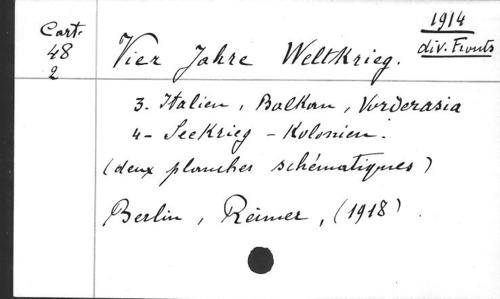 Cart.
48
2
1914
div. Fronts
Vier Jahre Weltkrieg.
3. Italien, Balkan, Vorderasia
4- Seekrieg - Kolonien.
(deux planches schématiques)
Berlin, Reimer, (1918).